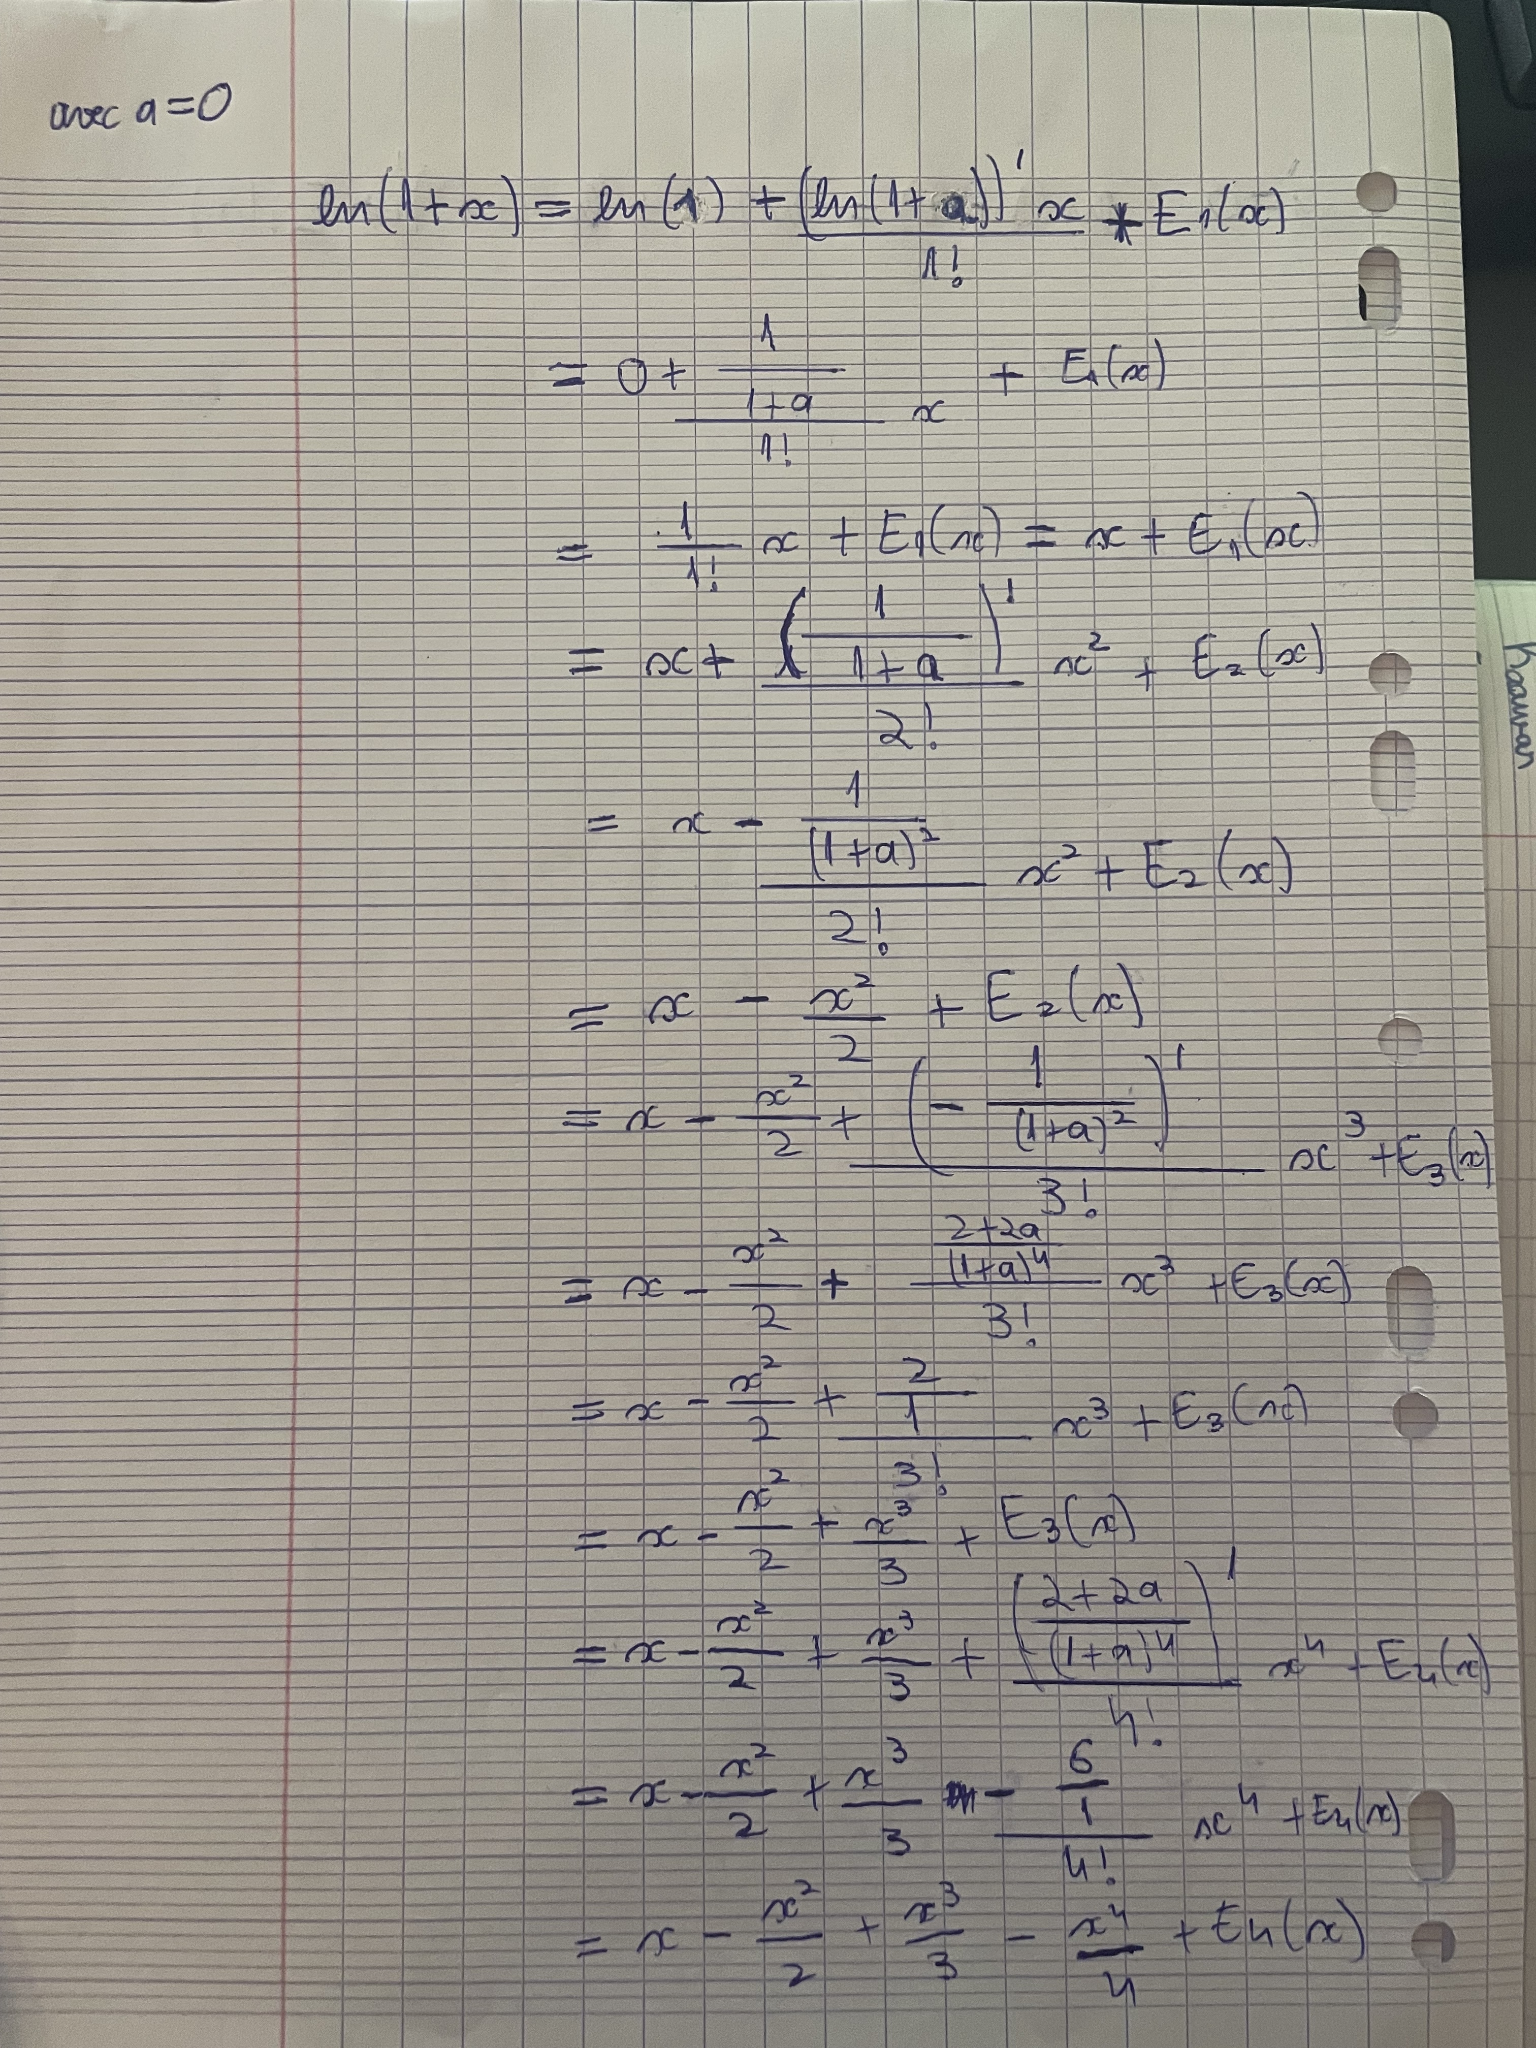 avec a=0
ln(1+x) = ln(1) + (ln(1+a))' x / 1! + E1(x)
= 0 + (1/(1+a))/1! x + E1(x)
= 1/1! x + E1(x) = x + E1(x)
= x + (1/(1+a))'/2! x² + E2(x)
= x - (1/(1+a)²)/2! x² + E2(x)
= x - x²/2 + E2(x)
= x - x²/2 + (-1/(1+a)²)'/3! x³ + E3(x)
= x - x²/2 + ((2+2a)/(1+a)⁴)/3! x³ + E3(x)
= x - x²/2 + (2/1)/3! x³ + E3(x)
= x - x²/2 + x³/3 + E3(x)
= x - x²/2 + x³/3 + ((2+2a)/(1+a)⁴)'/4! x⁴ + E4(x)
= x - x²/2 + x³/3 - (6/1)/4! x⁴ + E4(x)
= x - x²/2 + x³/3 - x⁴/4 + E4(x)